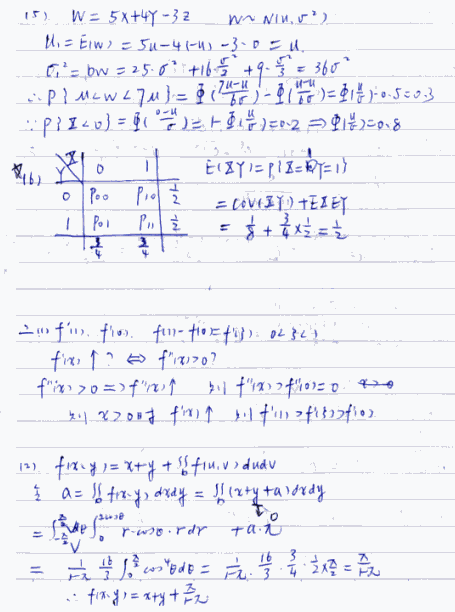 (5). W = 5X+4Y-3Z W~N(μ, σ²)
μ₁=E(W) = 5μ-4(-μ)-3·0 = μ
σ₁²=DW = 25·σ²+16·σ²/2+9·σ²/3 = 36σ²
∴P{μ<W<7μ} = Φ((7μ-μ)/6σ)-Φ((μ-μ)/6σ)=Φ(μ/σ)-0.5=0.3
∵P{X<0} = Φ((0-μ)/σ)=1-Φ(μ/σ)=0.2 ⇒ Φ(μ/σ)=0.8
(6). Y X 0 1 E(XY)=P{X=1 Y=1}
0 P₀₀ P₁₀ 1/2 =COV(XY)+EXEY
1 P₀₁ P₁₁ 1/2 = 1/8+3/4×1/2=1/2
3/4 3/4
二(1) f'(1). f'(0). f(1)-f(0)=f'(ξ). 0<ξ<1
f'(x)↑? ⇔ f''(x)>0?
f'''(x)>0 ⇒ f''(x)↑ 则 f''(x)>f''(0)=0. x>0
则 x>0时 f'(x)↑ 则 f'(1)>f'(ξ)>f'(0)
(2). f(x,y)=x+y+∬_D f(u,v)dudv
令 a=∬_D f(x,y)dxdy=∬_D (x+y+a)dxdy
=∫_{-π/2}^{π/2}dθ∫_0^{2cosθ} r·cosθ·rdr +a·π 0
= 1/(1-π) 16/3 ∫_0^{π/2}cos⁴θdθ = 1/(1-π)·16/3·3/4·1/2×π/2=π/(1-π)
∴ f(x,y)=x+y+π/(1-π)